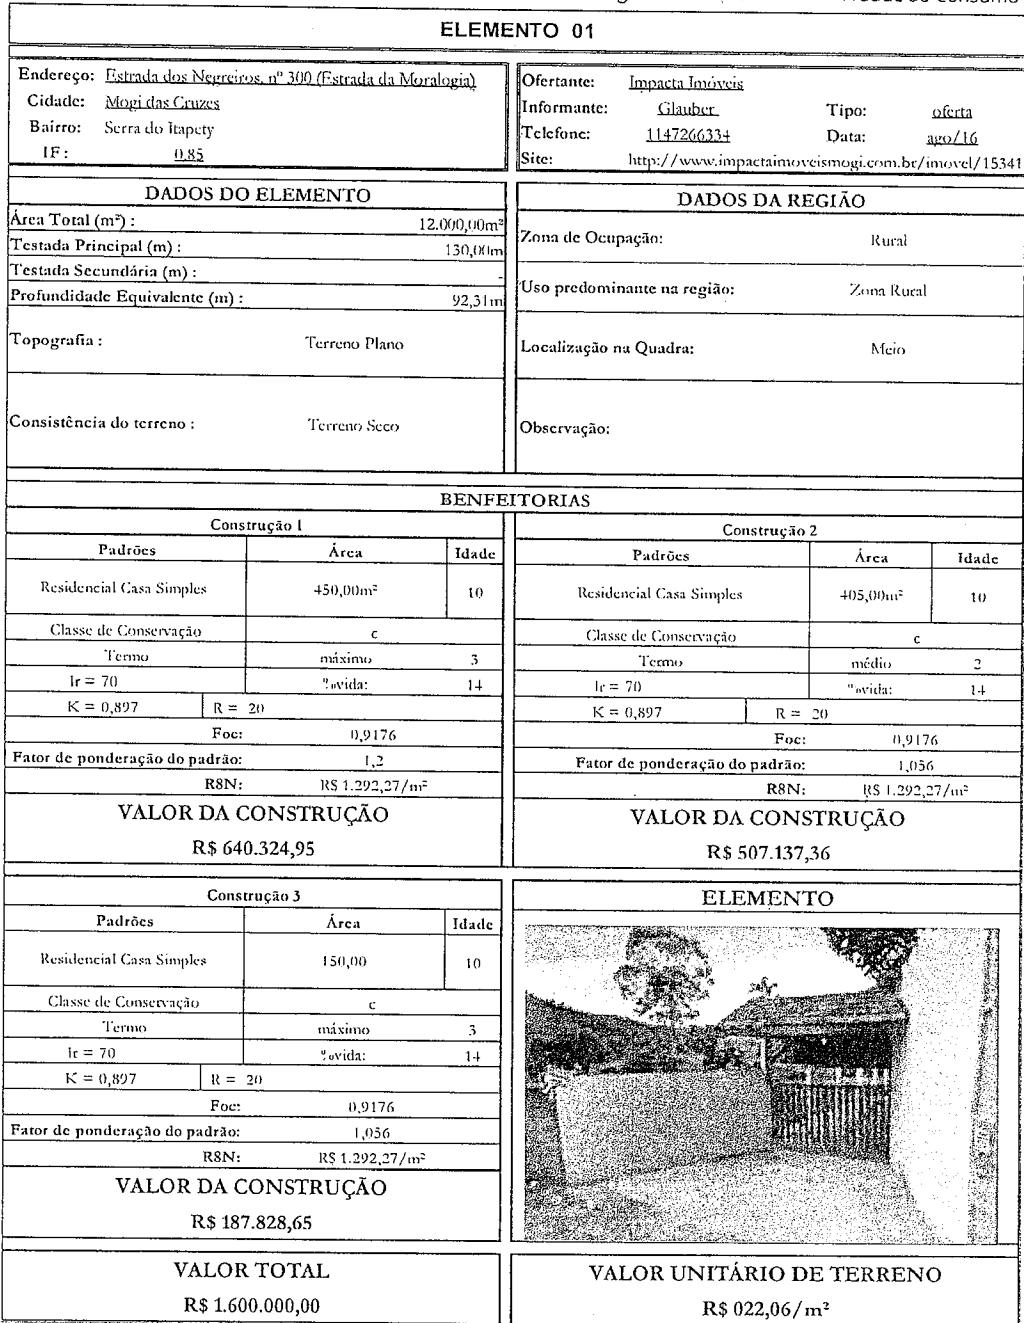 ELEMENTO 01
Endereço: Estrada dos Negreiros, nº 300 (Estrada da Moralogia)
Cidade: Mogi das Cruzes
Bairro: Serra do Itapety
IF: 0,85
Ofertante: Impacta Imóveis
Informante: Glauber Tipo: oferta
Telefone: 1147266334 Data: ago/16
Site: http://www.impactaimoveismogi.com.br/imovel/15341
DADOS DO ELEMENTO
Área Total (m²) : 12.000,00m²
Testada Principal (m) : 130,00m
Testada Secundária (m) : -
Profundidade Equivalente (m) : 92,31m
Topografia : Terreno Plano
Consistência do terreno : Terreno Seco
DADOS DA REGIÃO
Zona de Ocupação: Rural
Uso predominante na região: Zona Rural
Localização na Quadra: Meio
Observação:
BENFEITORIAS
Construção 1
Padrões Área Idade
Residencial Casa Simples 450,00m² 10
Classe de Conservação c
Termo máximo 3
Ir = 70 %vida: 14
K = 0,897 R = 20
Foc: 0,9176
Fator de ponderação do padrão: 1,2
R8N: R$ 1.292,27/m²
VALOR DA CONSTRUÇÃO
R$ 640.324,95
Construção 2
Padrões Área Idade
Residencial Casa Simples 405,00m² 10
Classe de Conservação c
Termo médio 2
Ir = 70 %vida: 14
K = 0,897 R = 20
Foc: 0,9176
Fator de ponderação do padrão: 1,056
R8N: R$ 1.292,27/m²
VALOR DA CONSTRUÇÃO
R$ 507.137,36
Construção 3
Padrões Área Idade
Residencial Casa Simples 150,00 10
Classe de Conservação c
Termo máximo 3
Ir = 70 %vida: 14
K = 0,897 R = 20
Foc: 0,9176
Fator de ponderação do padrão: 1,056
R8N: R$ 1.292,27/m²
VALOR DA CONSTRUÇÃO
R$ 187.828,65
ELEMENTO
VALOR TOTAL
R$ 1.600.000,00
VALOR UNITÁRIO DE TERRENO
R$ 022,06/m²